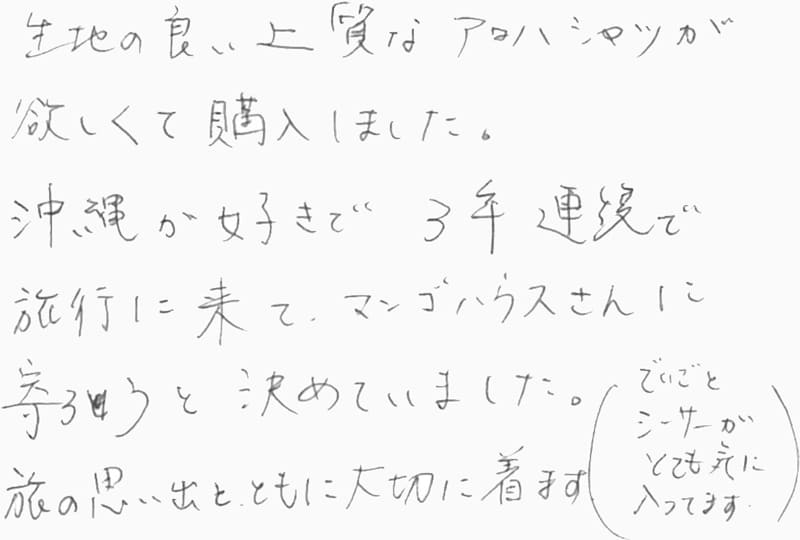 生地の良い上質なアロハシャツが
欲しくて購入しました。
沖縄が好きで3年連続で
旅行に来て、マンゴハウスさんに
寄ろうと決めていました。
旅の思い出とともに大切に着ます
(でいごと
シーサーが
とても気に
入ってます)